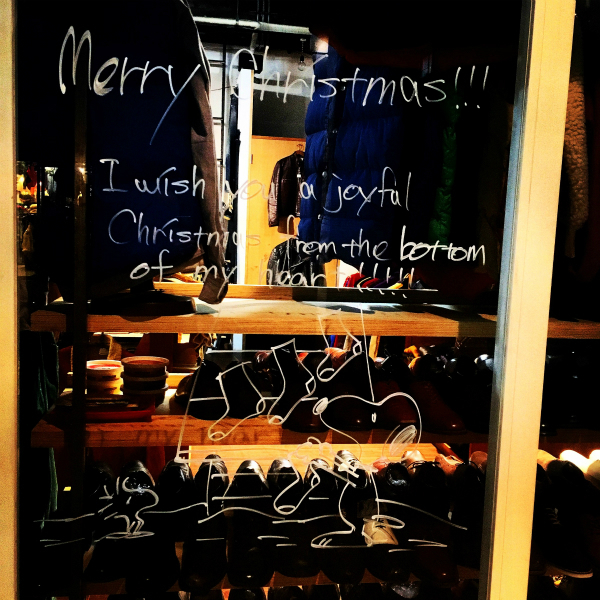 Merry Christmas!!!
I wish you a joyful
Christmas from the bottom
of my heart!!!!!